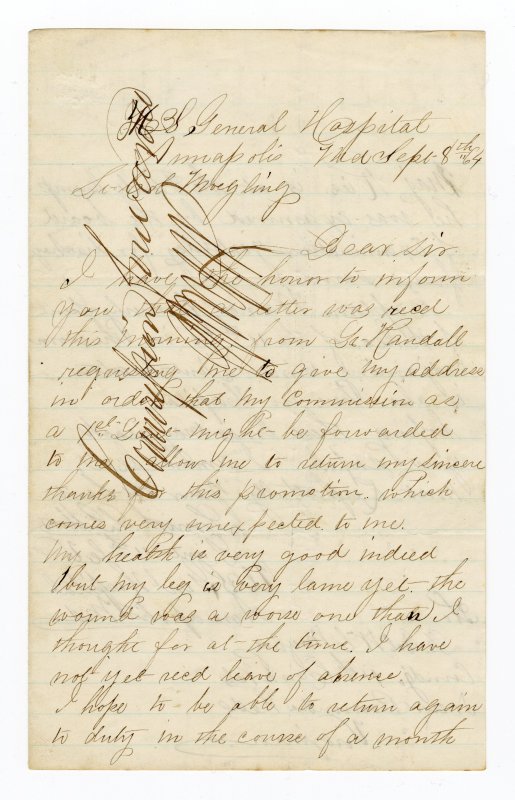 U S General Hospital
Annapolis Md Sept 8th /64
Lt Col Moegling
Dear Sir
I have the honor to inform
you that a letter was recd
this morning from Ge Randall
requesting me to give my address
in order that my Commission as
a 1st Lieut might be forwarded
to me allow me to return my sincere
thanks for this promotion. which
comes very unexpected to me.
My health is very good indeed
but my leg is very lame yet. the
wound was a worse one than I
thought for at the time. I have
not yet recd leave of absence.
I hope to be able to return again
to duty in the course of a month
Commission forwarded